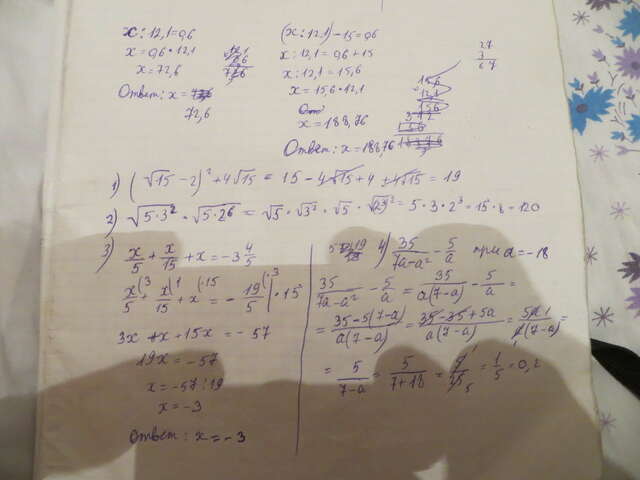 x : 12,1 = 0,6
x = 0,6 · 12,1
x = 72,6
Ответ: x =
72,6
(x : 12,1) - 15 = 0,6
x : 12,1 = 0,6 + 15
x : 12,1 = 15,6
x = 15,6 · 12,1
x = 188,76
Ответ: x = 188,76
1) (√15 - 2)² + 4√15 = 15 - 4√15 + 4 + 4√15 = 19
2) √5·3² · √5·2⁶ = √5 · √3² · √5 · √(2³)² = 5 · 3 · 2³ = 15 · 8 = 120
3) x/5 + x/15 + x = -3 4/5
x/5 + x/15 + x = - 19/5 | · 15
3x + x + 15x = -57
19x = -57
x = -57 : 19
x = -3
Ответ: x = -3
4) 35/7a-a² - 5/a при a = -18
35/7a-a² - 5/a = 35/a(7-a) - 5/a =
= 35-5(7-a)/a(7-a) = 35-35+5a/a(7-a) = 5a/a(7-a) =
= 5/7-a = 5/7+18 = 5/25 = 1/5 = 0,2